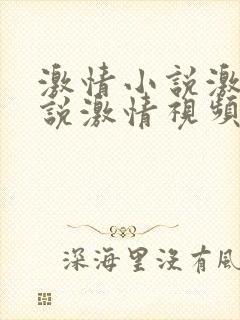 激情小說激
說激情視頻
深海里沒有風